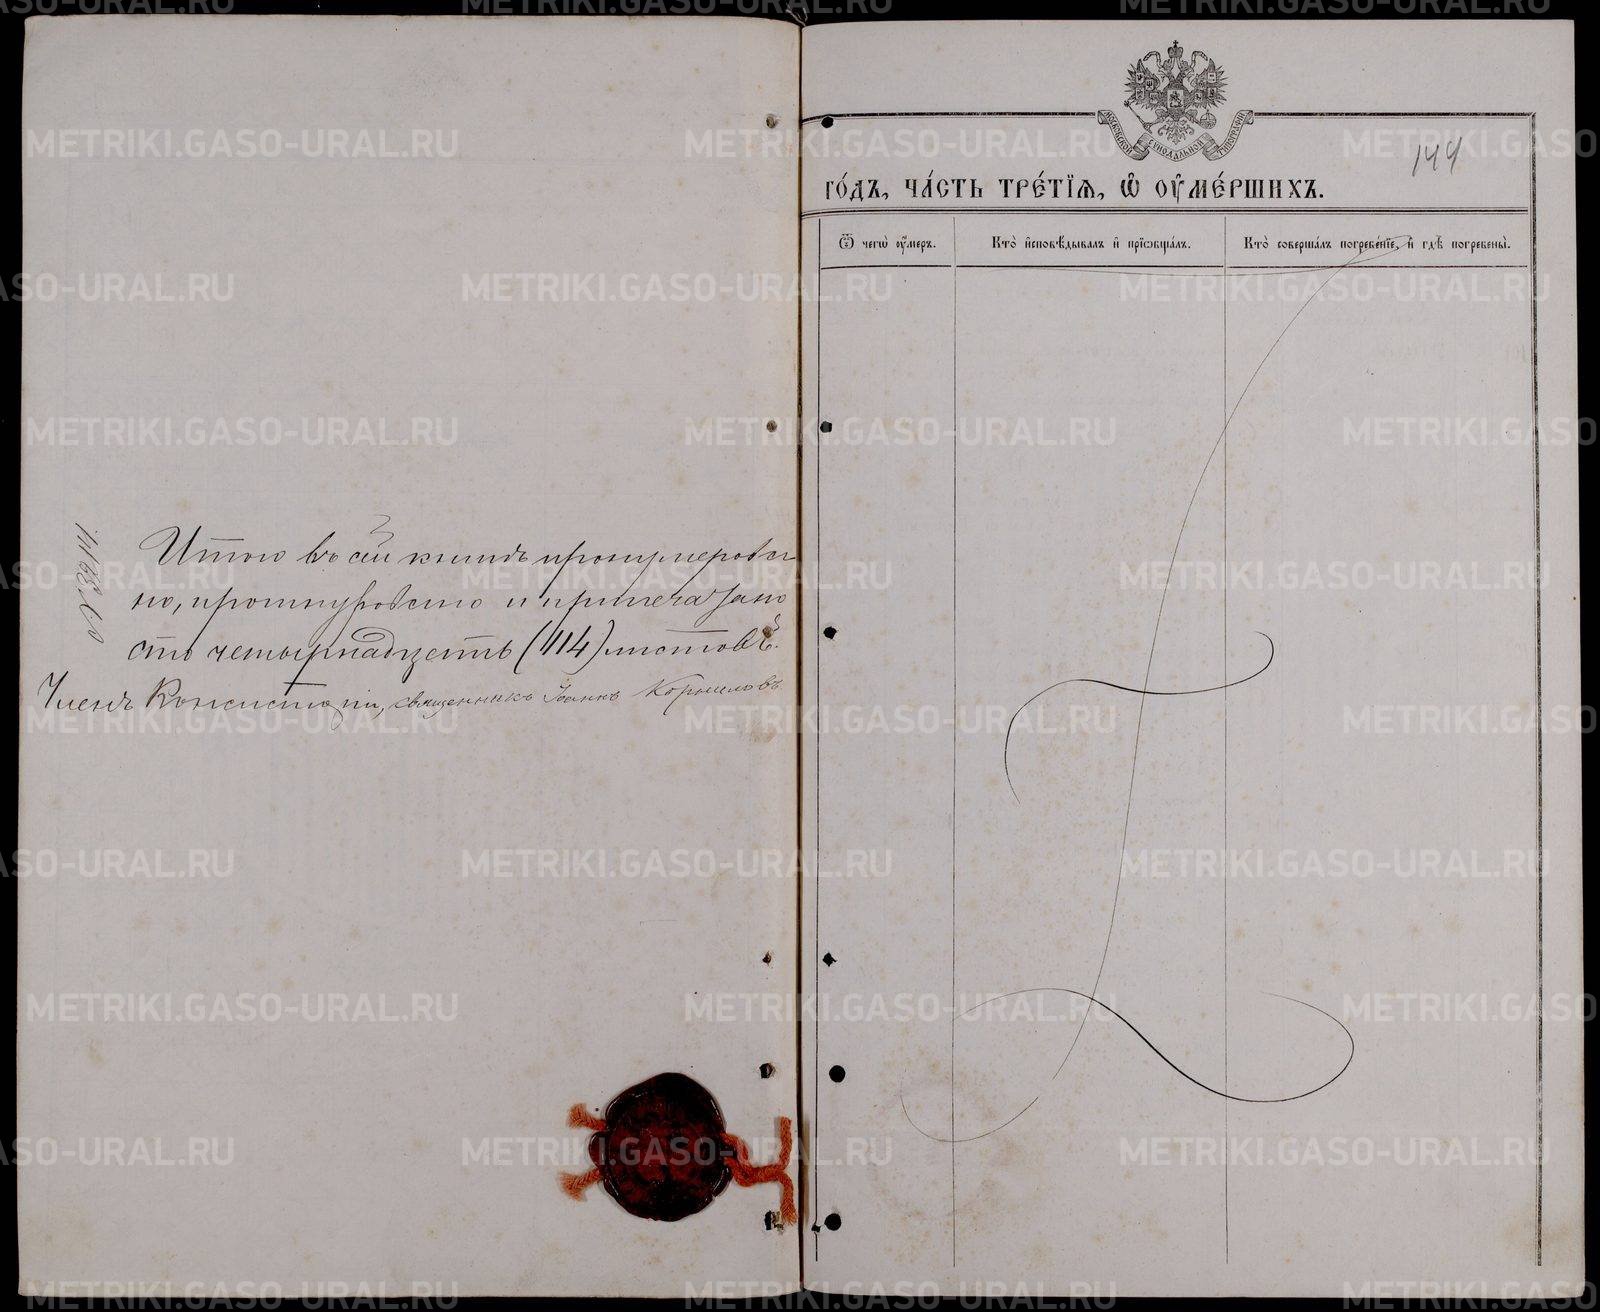 № 16314
Итого въ сей книгѣ пронумерова
но, прошнуровано и припечатано
сто четырнадцать (114) листовъ.
Членъ Консисторіи, священникъ Іоаннъ Корниловъ
МОСКОВСКОЙ СѴНОДАЛЬНОЙ ТИПОГРАФІИ
144
го́дъ, ча́сть тре́тїѧ, ѡ҆ ᲂу҆ме́ршихъ.
Ѿ чегѡ̀ ᲂу҆́меръ.
Кто̀ и҆сповѣ́дывалъ и҆ прїѡбща́лъ.
Кто̀ соверша́лъ погребе́нїе, и҆ гдѣ̀ погребены̀.
METRIKI.GASO-URAL.RU